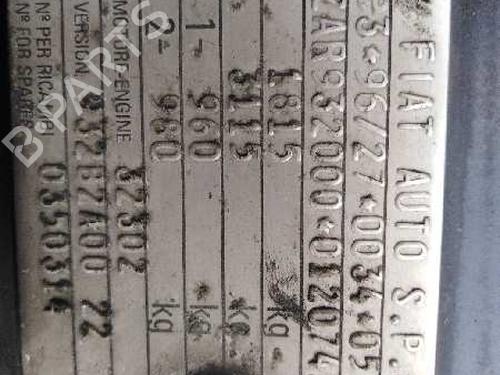 FIAT AUTO S.P.
e3*96/27*0034*05
ZAR932000*012074
1815 kg
3115 kg
1- 960 kg
2- 960 kg
MOTORE-ENGINE 32302
VERSION. 932B2A00 22
N° PER RICAMBI
N° FOR SPARES 0350314
B-PARTS